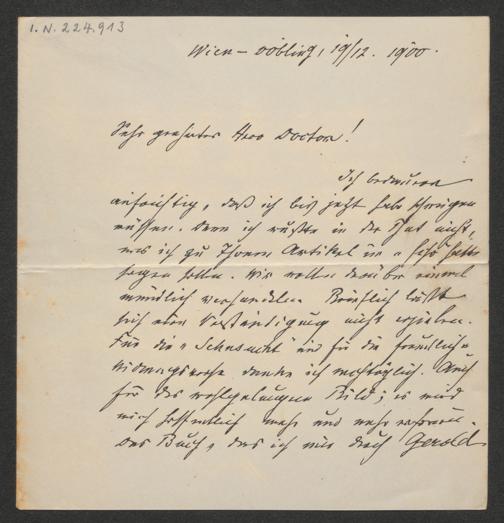 I.N. 224.913
Wien – Döbling, 19/12. 1900.
Sehr geehrter Herr Doctor!
Ich bedauere
aufrichtig, daß ich bis jetzt habe schweigen
müssen. Denn ich wußte in der That nicht,
was ich zu Ihrem Artikel in
sagen sollte. Wir wollen darüber einmal
mündlich verhandeln. Brieflich läßt
sich eine Verständigung nicht erzielen.
Für die „Sehnsucht" und für die freundliche
Widmung danke ich nachträglich. Auch
für das wohlgelungene Bild; es wird
mich hoffentlich mehr und mehr erfreuen.
Das Buch, das ich mir durch Gerold